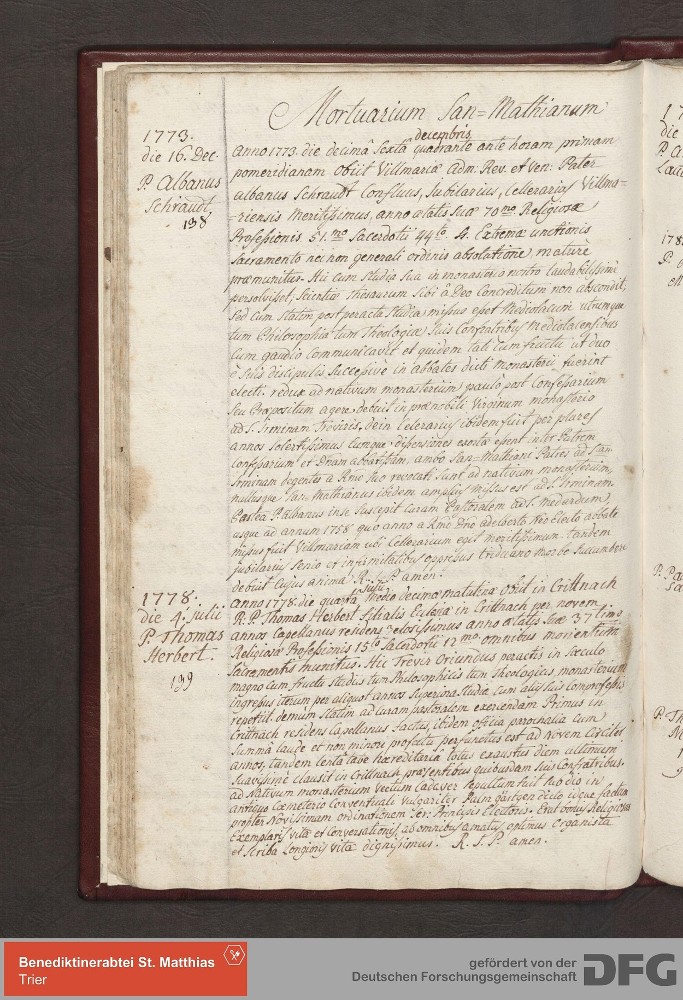 Mortuarium San=Mathianum
1773.
die 16. Dec.
P. Albanus
Schraudt,
138
decembris
Anno 1773. die decimâ Sextâ quadrante ante horam primam
pomeridianam obiit Villmariæ Adm: Rev. et Ven: Pater
Albanus Schraudt Confluus, Jubilarius, Cellerarius Villma=
=riensis meritissimus, anno ætatis suæ 70 mo Religiosæ
Professionis 51. mo Sacerdotii 44 to Extremæ unctionis
Sacramento nec non generali ordinis absolutione mature
præmunitus. Hic cum studia sua in monasterio nostro laudabilissimè
persolvisset, Scientiæ thesaurum sibi â Deo Concreditum non abscondit,
sed cum statim post peracta studia missus esset Mediolacum utrumque
tum Philosophiæ tum Theologiæ suis Confratribus Mediolacensibus
cum gaudio communicavit et quidem tali cum fructu ut duo
è suis discipulis successive in abbates dicti monasterii fuerint
electi. redux ad nativum monasterium paulo post Confessarium
seu Præpositum agere debuit in prænobili Virginum monasterio
ad S. Irminam Treviris, dein Celerarius ibidem fuit per plures
annos solertissimus cumque dissensiones exortæ essent inter Patrem
Confessarium et Dnam abbatissam, ambo San-Mathiani Patres ad Sam
Irminam degentes a Rmo suo revocati sunt ad nativum monasterium,
nullusque San-Mathianus ibidem amplius missus est ad S. Irminam.
Postea P. Albanus in se suscepit curam Pastoralem ad S. Medardum,
usque ad annum 1758 quo anno a Rmo Dno adalberto Neo Electo abbate
missus fuit Villmariam ubi Cellerarium egit meritissimum. tandem
jubilarius senio et infirmitatibus oppressus triduano morbo succumbere
debuit cujus anima R. I. P. amen.
1778.
die 4. julii
P. Thomas
Herbert.
139
julii
Anno 1778. die quarta mediâ decimæ matutinæ obiit in Crittnach
R. P. Thomas Herbert filialis Ecclesiæ in Crittnach per novem
annos Capellanus residens zelosissimus anno ætatis suæ 37 timo
Religiosæ Professionis 15 to Sacerdotii 12 mo omnibus morientium
Sacramentis munitus. Hic Trevir oriundus peractis in sæculo
magno cum fructu studiis tum Philosophicis tum Theologicis, monasterium
ingressus iterum per aliquot annos superiora studia cum aliis suis Comprofessis
repetiit demum statim ad curam pastoralem exercendam Primus in
Crittnach residens Capellanus factus, ibidem officia parochialia cum
summâ laude et non minori profectu perfunctus est ad novem circiter
annos, tandem lenta tabe hæreditariâ totus exaustus diem ultimum
suavissimè clausit in Crittnach, præsentibus quibusdam suis Confratribus.
ad Nativum monasterium vectum Cadaver sepultum fuit hoc die in
antiquo Cœmeterio Conventuali vulgariter Palm gärtgen dicto idque factum
propter novissimam ordinationem Ser: Principis Electoris. Erat bonus Religiosus
Exemplaris vitæ et Conversationis, ab omnibus amatus, optimus Organista
et scriba Longioris vitæ dignissimus. R. I. P. amen.
Benediktinerabtei St. Matthias
Trier
gefördert von der
Deutschen Forschungsgemeinschaft
DFG